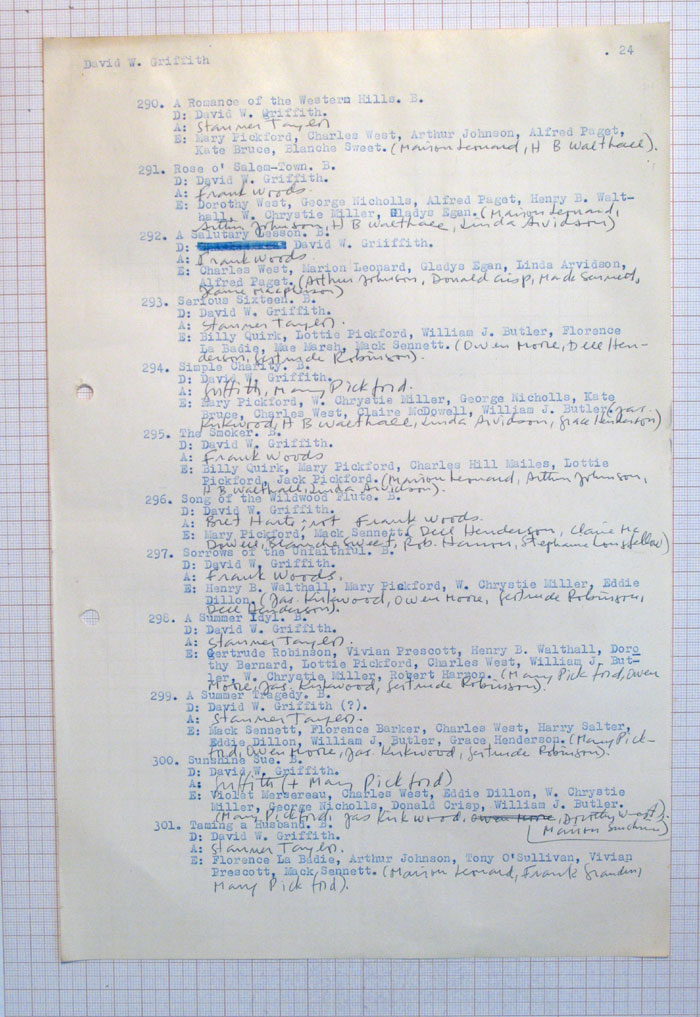 David W. Griffith
. 24
290. A Romance of the Western Hills. B.
D: David W. Griffith.
A: Stanner Taylor
E: Mary Pickford, Charles West, Arthur Johnson, Alfred Paget,
Kate Bruce, Blanche Sweet. (Marion Leonard, H B Walthall).
291. Rose o' Salem-Town. B.
D: David W. Griffith.
A: Frank Woods.
E: Dorothy West, George Nicholls, Alfred Paget, Henry B. Walt-
hall, W. Chrystie Miller, Gladys Egan. (Marion Leonard,
Arthur Johnson, H B Walthall, Linda Arvidson)
292. A Salutary Lesson. B.
D: David W. Griiffith.
A: Frank Woods.
E: Charles West, Marion Leonard, Gladys Egan, Linda Arvidson,
Alfred Paget. (Arthur Johnson, Donald Crisp, Mack Sennett,
Jeanie Macpherson)
293. Serious Sixteen. B.
D: David W. Griffith.
A: Stanner Taylor.
E: Billy Quirk, Lottie Pickford, William J. Butler, Florence
La Badie, Mae Marsh, Mack Sennett. (Owen Moore, Dell Hen-
derson, Gertrude Robinson).
294. Simple Charity. B.
D: David W. Griffith.
A: Griffith, Mary Pickford.
E: Mary Pickford, W. Chrystie Miller, George Nicholls, Kate
Bruce, Charles West, Claire McDowell, William J. Butler (Jas.
Kirkwood, H B Walthall, Linda Arvidson, Grace Henderson)
295. The Smoker. B.
D: David W. Griffith.
A: Frank Woods
E: Billy Quirk, Mary Pickford, Charles Hill Mailes, Lottie
Pickford, Jack Pickford. (Marion Leonard, Arthur Johnson,
H B Walthall, Linda Arvidson).
296. Song of the Wildwood Flute. B.
D: David W. Griffith.
A: Bret Harte; not Frank Woods.
E: Mary Pickford, Mack Sennett. (Dell Henderson, Claire Mc
Dowell, Blanche Sweet, Rob. Harron, Stephanie Longfellow)
297. Sorrows of the Unfaithful. B.
D: David W. Griffith.
A: Frank Woods.
E: Henry B. Walthall, Mary Pickford, W. Chrystie Miller, Eddie
Dillon. (Jas. Kirkwood, Owen Moore, Gertrude Robinson,
Dell Henderson).
298. A Summer Idyl. B.
D: David W. Griffith.
A: Stanner Taylor.
E: Gertrude Robinson, Vivian Prescott, Henry B. Walthall, Doro
thy Bernard, Lottie Pickford, Charles West, William J. But-
ler, W. Chrystie Miller, Robert Harron. (Mary Pickford, Owen
Moore, Jas. Kirkwood, Gertrude Robinson).
299. A Summer Tragedy. B.
D: David W. Griffith (?).
A: Stanner Taylor.
E: Mack Sennett, Florence Barker, Charles West, Harry Salter,
Eddie Dillon, William J. Butler, Grace Henderson. (Mary Pick-
ford, Owen Moore, Jas. Kirkwood, Gertrude Robinson).
300. Sunshine Sue. B.
D: David W. Griffith.
A: Griffith (+ Mary Pickford)
E: Violet Mersereau, Charles West, Eddie Dillon, W. Chrystie
Miller, George Nicholls, Donald Crisp, William J. Butler.
(Mary Pickford, Jas Kirkwood, Owen Moore, Dorothy West).
Marion Sunshine)
301. Taming a Husband. B.
D: David W. Griffith.
A: Stanner Taylor.
E: Florence La Badie, Arthur Johnson, Tony O'Sullivan, Vivian
Prescott, Mack Sennett. (Marion Leonard, Frank Grandin,
Mary Pickford).